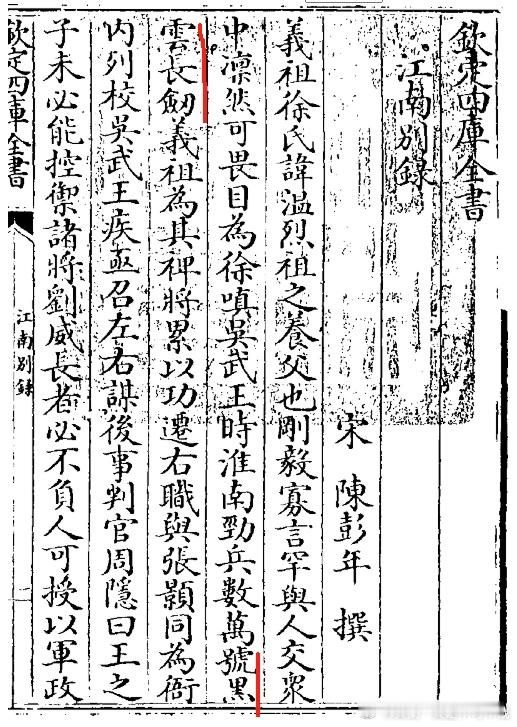 欽定四庫全書
江南別錄
宋 陳彭年 撰
義祖徐氏諱溫烈祖之養父也剛毅寡言罕與人交衆
中凛然可畏目為徐嗔吳武王時淮南勁兵數萬號黑
雲長劒義祖為其裨將累以功遷右職與張顥同為衙
内列校吳武王疾亟召左右謀後事判官周隱曰王之
子未必能控禦諸將劉威長者必不負人可授以軍政
欽定四庫全書
江南別錄
一